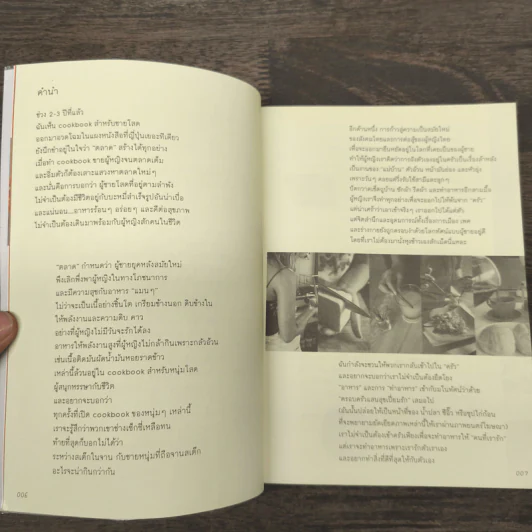 คำนำ
ช่วง 2-3 ปีที่แล้ว
ฉันเห็น cookbook สำหรับชายโสด
ออกมาอวดโฉมในแผงหนังสือที่ญี่ปุ่นเยอะทีเดียว
ยังนึกขำอยู่ในใจว่า "ตลาด" สร้างได้ทุกอย่าง
เมื่อทำ cookbook ขายผู้หญิงจนตลาดเต็ม
และอิ่มตัวก็ต้องเสาะแสวงหาตลาดใหม่ๆ
และนั่นคือการบอกว่า ผู้ชายโสดที่อยู่ตามลำพัง
ไม่จำเป็นต้องมีชีวิตอยู่กับบะหมี่สำเร็จรูปอันน่าเบื่อ
และแน่นอน...อาหารร้อนๆ อร่อยๆ และดีต่อสุขภาพ
ไม่จำเป็นต้องเดินมาพร้อมกับผู้หญิงสักคนในชีวิต
"ตลาด" กำหนดว่า ผู้ชายยุคหลังสมัยใหม่
พึงเลิกพึ่งพาผู้หญิงในทางโภชนาการ
และมีความสุขกับอาหาร "แมนๆ"
ไม่ว่าจะเป็นเนื้อย่างชิ้นโต เกรียมข้างนอก ดิบข้างใน
ให้พลังงานและความดิบ คาว
อย่างที่ผู้หญิงไม่มีวันจะรักได้ลง
อาหารให้พลังงานสูงที่ผู้หญิงไม่กล้ากินเพราะกลัวอ้วน
เช่นเนื้อติดมันผัดน้ำมันหอยราดข้าว
เหล่านี้ล้วนอยู่ใน cookbook สำหรับหนุ่มโสด
ผู้สนุกหรรษากับชีวิต
และอยากจะบอกว่า
ทุกครั้งที่เปิด cookbook ของหนุ่มๆ เหล่านี้
เราจะรู้สึกว่าพวกเขาช่างเซ็กซี่เหลือทน
ท้ายที่สุดก็บอกไม่ได้ว่า
ระหว่างสเต็กในจาน กับชายหนุ่มที่ถือจานสเต็ก
อะไรจะน่ากินกว่ากัน
006
อีกด้านหนึ่ง การก้าวสู่ความเป็นสมัยใหม่
ของสังคมไทยและการต่อสู้ของผู้หญิงไทย
เพื่อจะออกมายืนหยัดอยู่ในโลกที่เคยเป็นของผู้ชาย
ทำให้ผู้หญิงเราคิดว่าการยังตัวเองอยู่ในครัวเป็นเรื่องล้าหลัง
เพราะวันๆ
ปัดกวาดเช็ดถูบ้าน ซักผ้า รีดผ้า และทำอาหารอีกสามมื้อ
ผู้หญิงเราจึงทำทุกอย่างเพื่อจะออกไปให้พ้นจาก "ครัว"
แต่น่าเศร้าว่าเอาเข้าจริงๆ เราออกไปได้แต่ตัว
ฉันกำลังจะชวนให้พวกเรากลับเข้าไปใน "ครัว"
และอยากจะบอกว่าเราไม่จำเป็นต้องยึดโยง
"อาหาร" และการ "ทำอาหาร" เข้ากับมโนทัศน์ว่าด้วย
"ครอบครัวแสนสุขเปี่ยมรัก" เสมอไป
(อันนั้นปล่อยให้เป็นหน้าที่ของ น้ำปลา ซีอิ๊ว หรือซุปไก่ก้อน
ที่จะพยายามยัดเยียดภาพเหล่านี้ให้เราผ่านภาพยนตร์โฆษณา)
เราไม่จำเป็นต้องเข้าครัวเพียงเพื่อจะทำอาหารให้ "คนที่เรารัก"
แต่เราจะทำอาหารเพราะเรารักตัวเราเอง
และอยากทำสิ่งที่ดีที่สุดให้กับตัวเอง
007